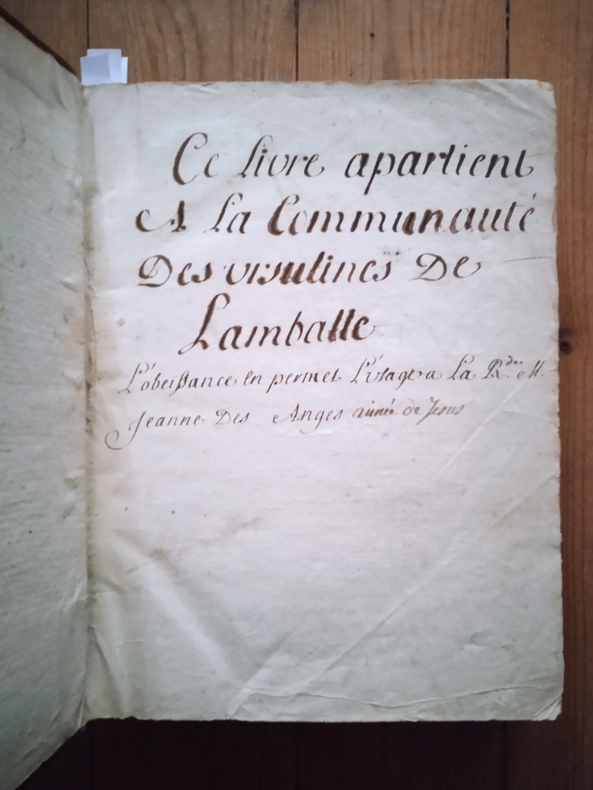 Ce livre apartient
A la Communauté
Des ursulines De
Lamballe
L'obeissance en permet l'usage a La Rde M.
Jeanne Des Anges aimée de Jesus